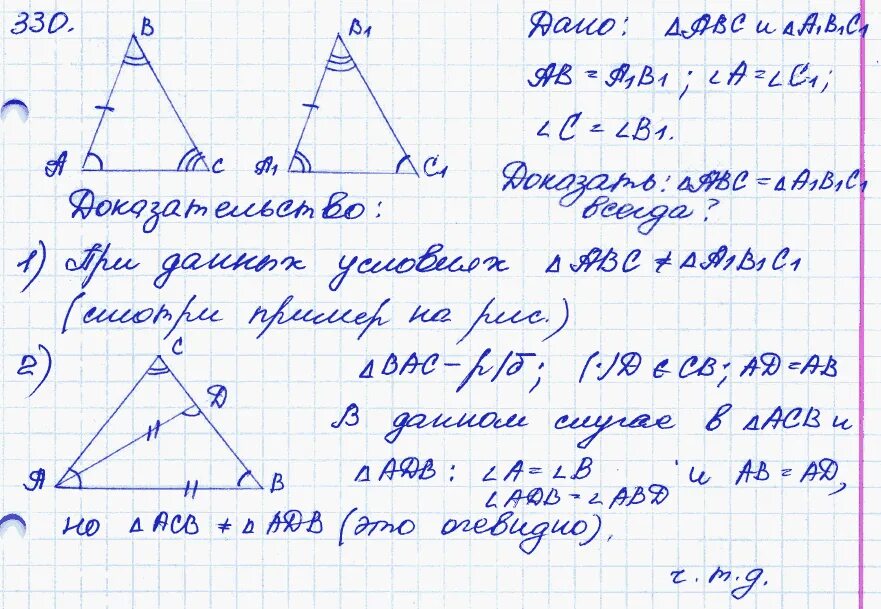 330.
B
B1
A
C
A1
C1
Дано: △ABC и △A1B1C1
AB = A1B1; ∠A = ∠C1;
∠C = ∠B1.
Доказать: △ABC = △A1B1C1
всегда?
Доказательство:
1) При данных условиях △ABC ≠ △A1B1C1
(смотри пример на рис.)
2)
C
D
A
B
△BAC – р/б; (·)D ∈ CB; AD = AB
В данном случае в △ACB и
△ADB: ∠A = ∠B и AB = AD,
∠ADB = ∠ABD
но △ACB ≠ △ADB (это очевидно),
ч.т.д.